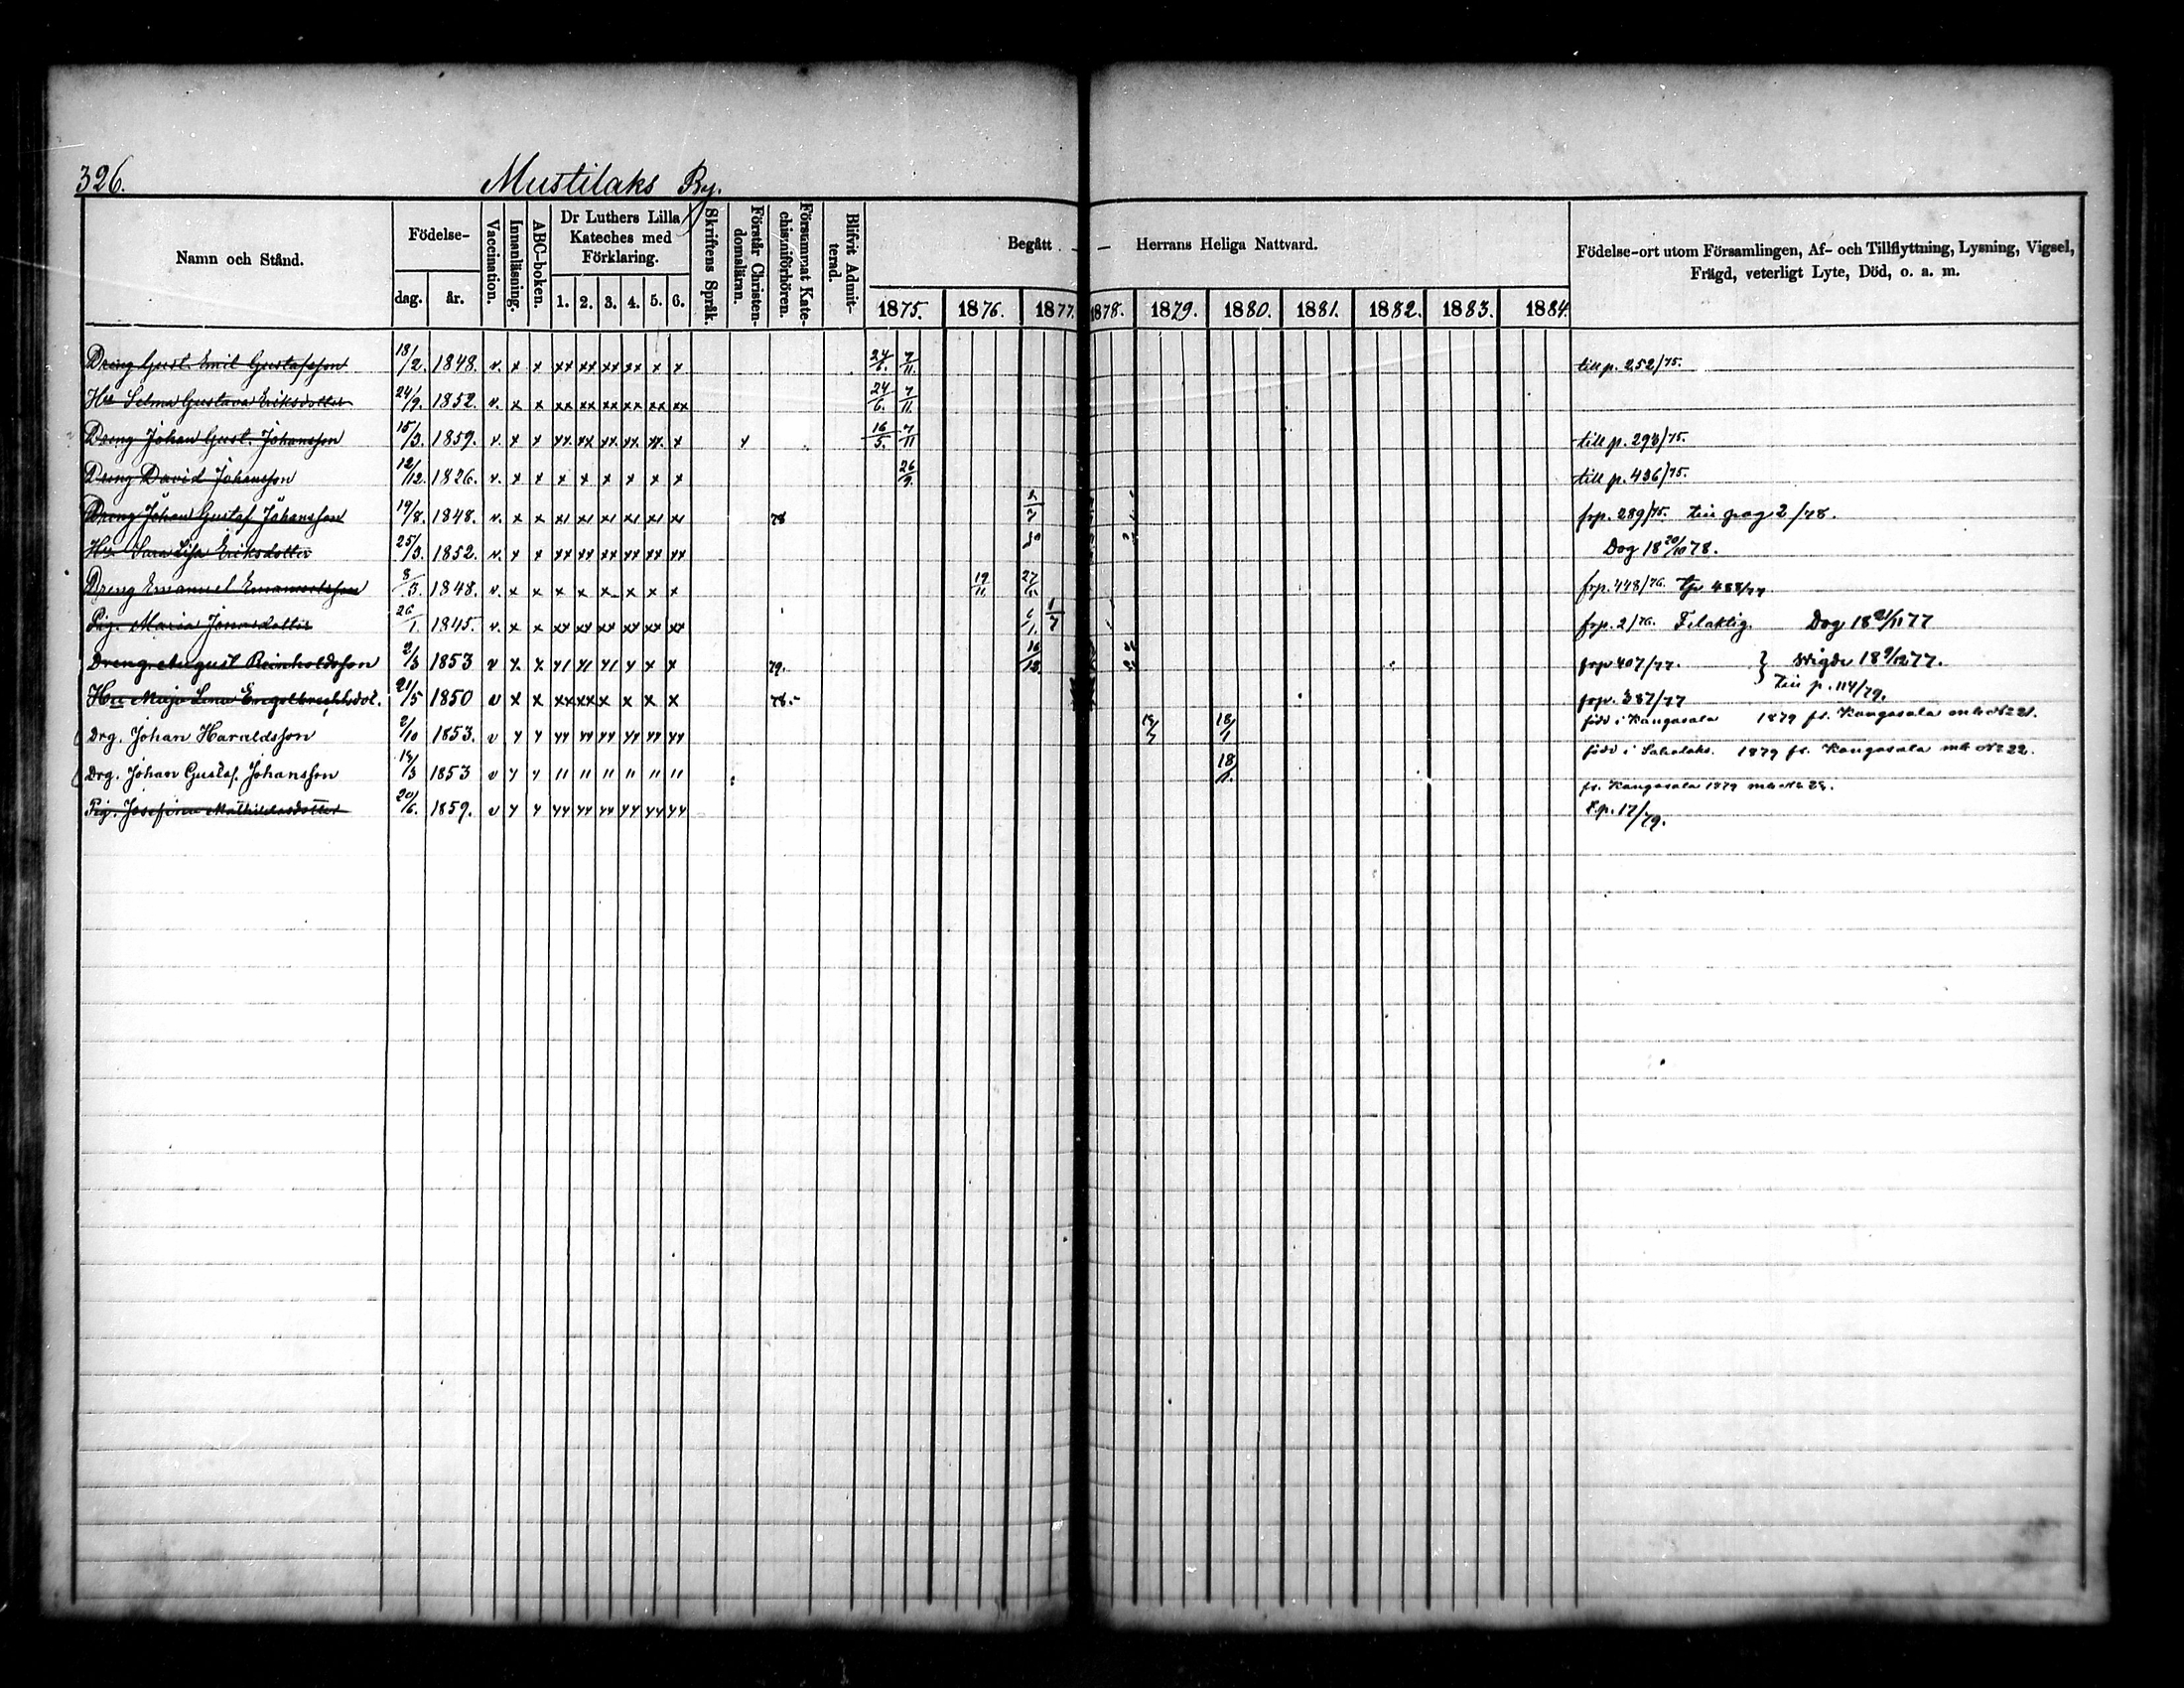 326.
Mustilaks By.
Namn och Stånd. Födelse- dag. år. Vaccination. Innanläsning. ABC-boken. Dr Luthers Lilla Kateches med Förklaring. 1. 2. 3. 4. 5. 6. Skriftens Språk. Förstår Christendomsläran. Försummat Katechismiförhören. Blifvit Admitterad. Begått — Herrans Heliga Nattvard. Födelse-ort utom Församlingen, Af- och Tillflyttning, Lysning, Vigsel, Frägd, veterligt Lyte, Död, o. a. m.
1875. 1876. 1877. 1878. 1879. 1880. 1881. 1882. 1883. 1884.
Dreng Gust. Emil Gustafsson 18/2. 1848. v. x x xx xx xx xx x x 24/6. 7/11. till p. 252/75.
Hu Selma Gustava Eriksdotter 24/9. 1852. v. x x xx xx xx xx xx xx 24/6. 7/11.
Dreng Johan Gust. Johansson 15/3. 1859. v. x x xx xx xx xx xx x x 16/5. 7/11 till p. 293/75.
Dreng David Johansson 12/12. 1826. v. x x x x x x x x 26/9. till p. 436/75.
Dreng Johan Gustaf Johansson 19/8. 1848. v. x x 78 frp. 289/75. till pag 2/78.
Hu Sara Lisa Eriksdotter 25/3. 1852. v. x x xx xx xx xx xx xx Dog 18 20/10 78.
Dreng Emanuel Emanuelsson 8/3. 1848. v. x x x x x x x x 19/11 27/11 frp. 448/76. tp 488/77
Pig. Maria Jonasdotter 26/1. 1845. v. x x xx xx xx xx xx xx 1/7 frp. 2/76. Felaktig. Dog 18 21/11 77
Dreng August Reinholdsson 2/3 1853 v x x 79. 16/12. frp 407/77. } Vigde 18 9/12 77.
Hu Maja Lena Engelbrechtsdot. 21/5 1850 v x x xx xx x x x x 78.- frp. 387/77 till p. 114/79.
Drg. Johan Haraldsson 2/10 1853. 18/1 född i Kangasala 1879 fr. Kangasala mb No 21.
Drg. Johan Gustaf Johansson 1853 18/1. född i Sahalaks. 1879 fr. Kangasala mb No 22.
Pig. Josefina Mathildasdotter 20/6. 1859. fr. Kangasala 1879 mb No 23.
t.p. 17/79.